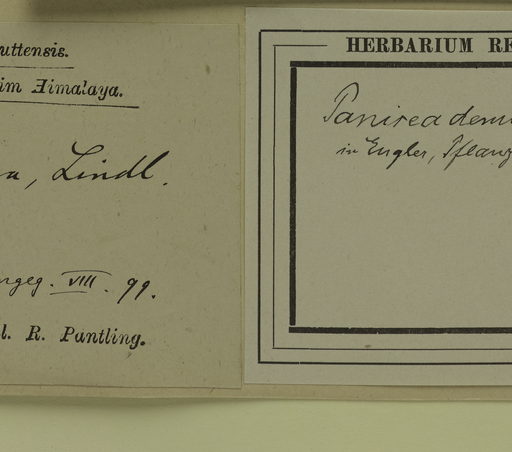 uttensis.
im Himalaya.
a, Lindl.
rgeg. VIII. 99.
l. R. Pantling.
HERBARIUM RE
Panisea demi
in Engler, Pflanz